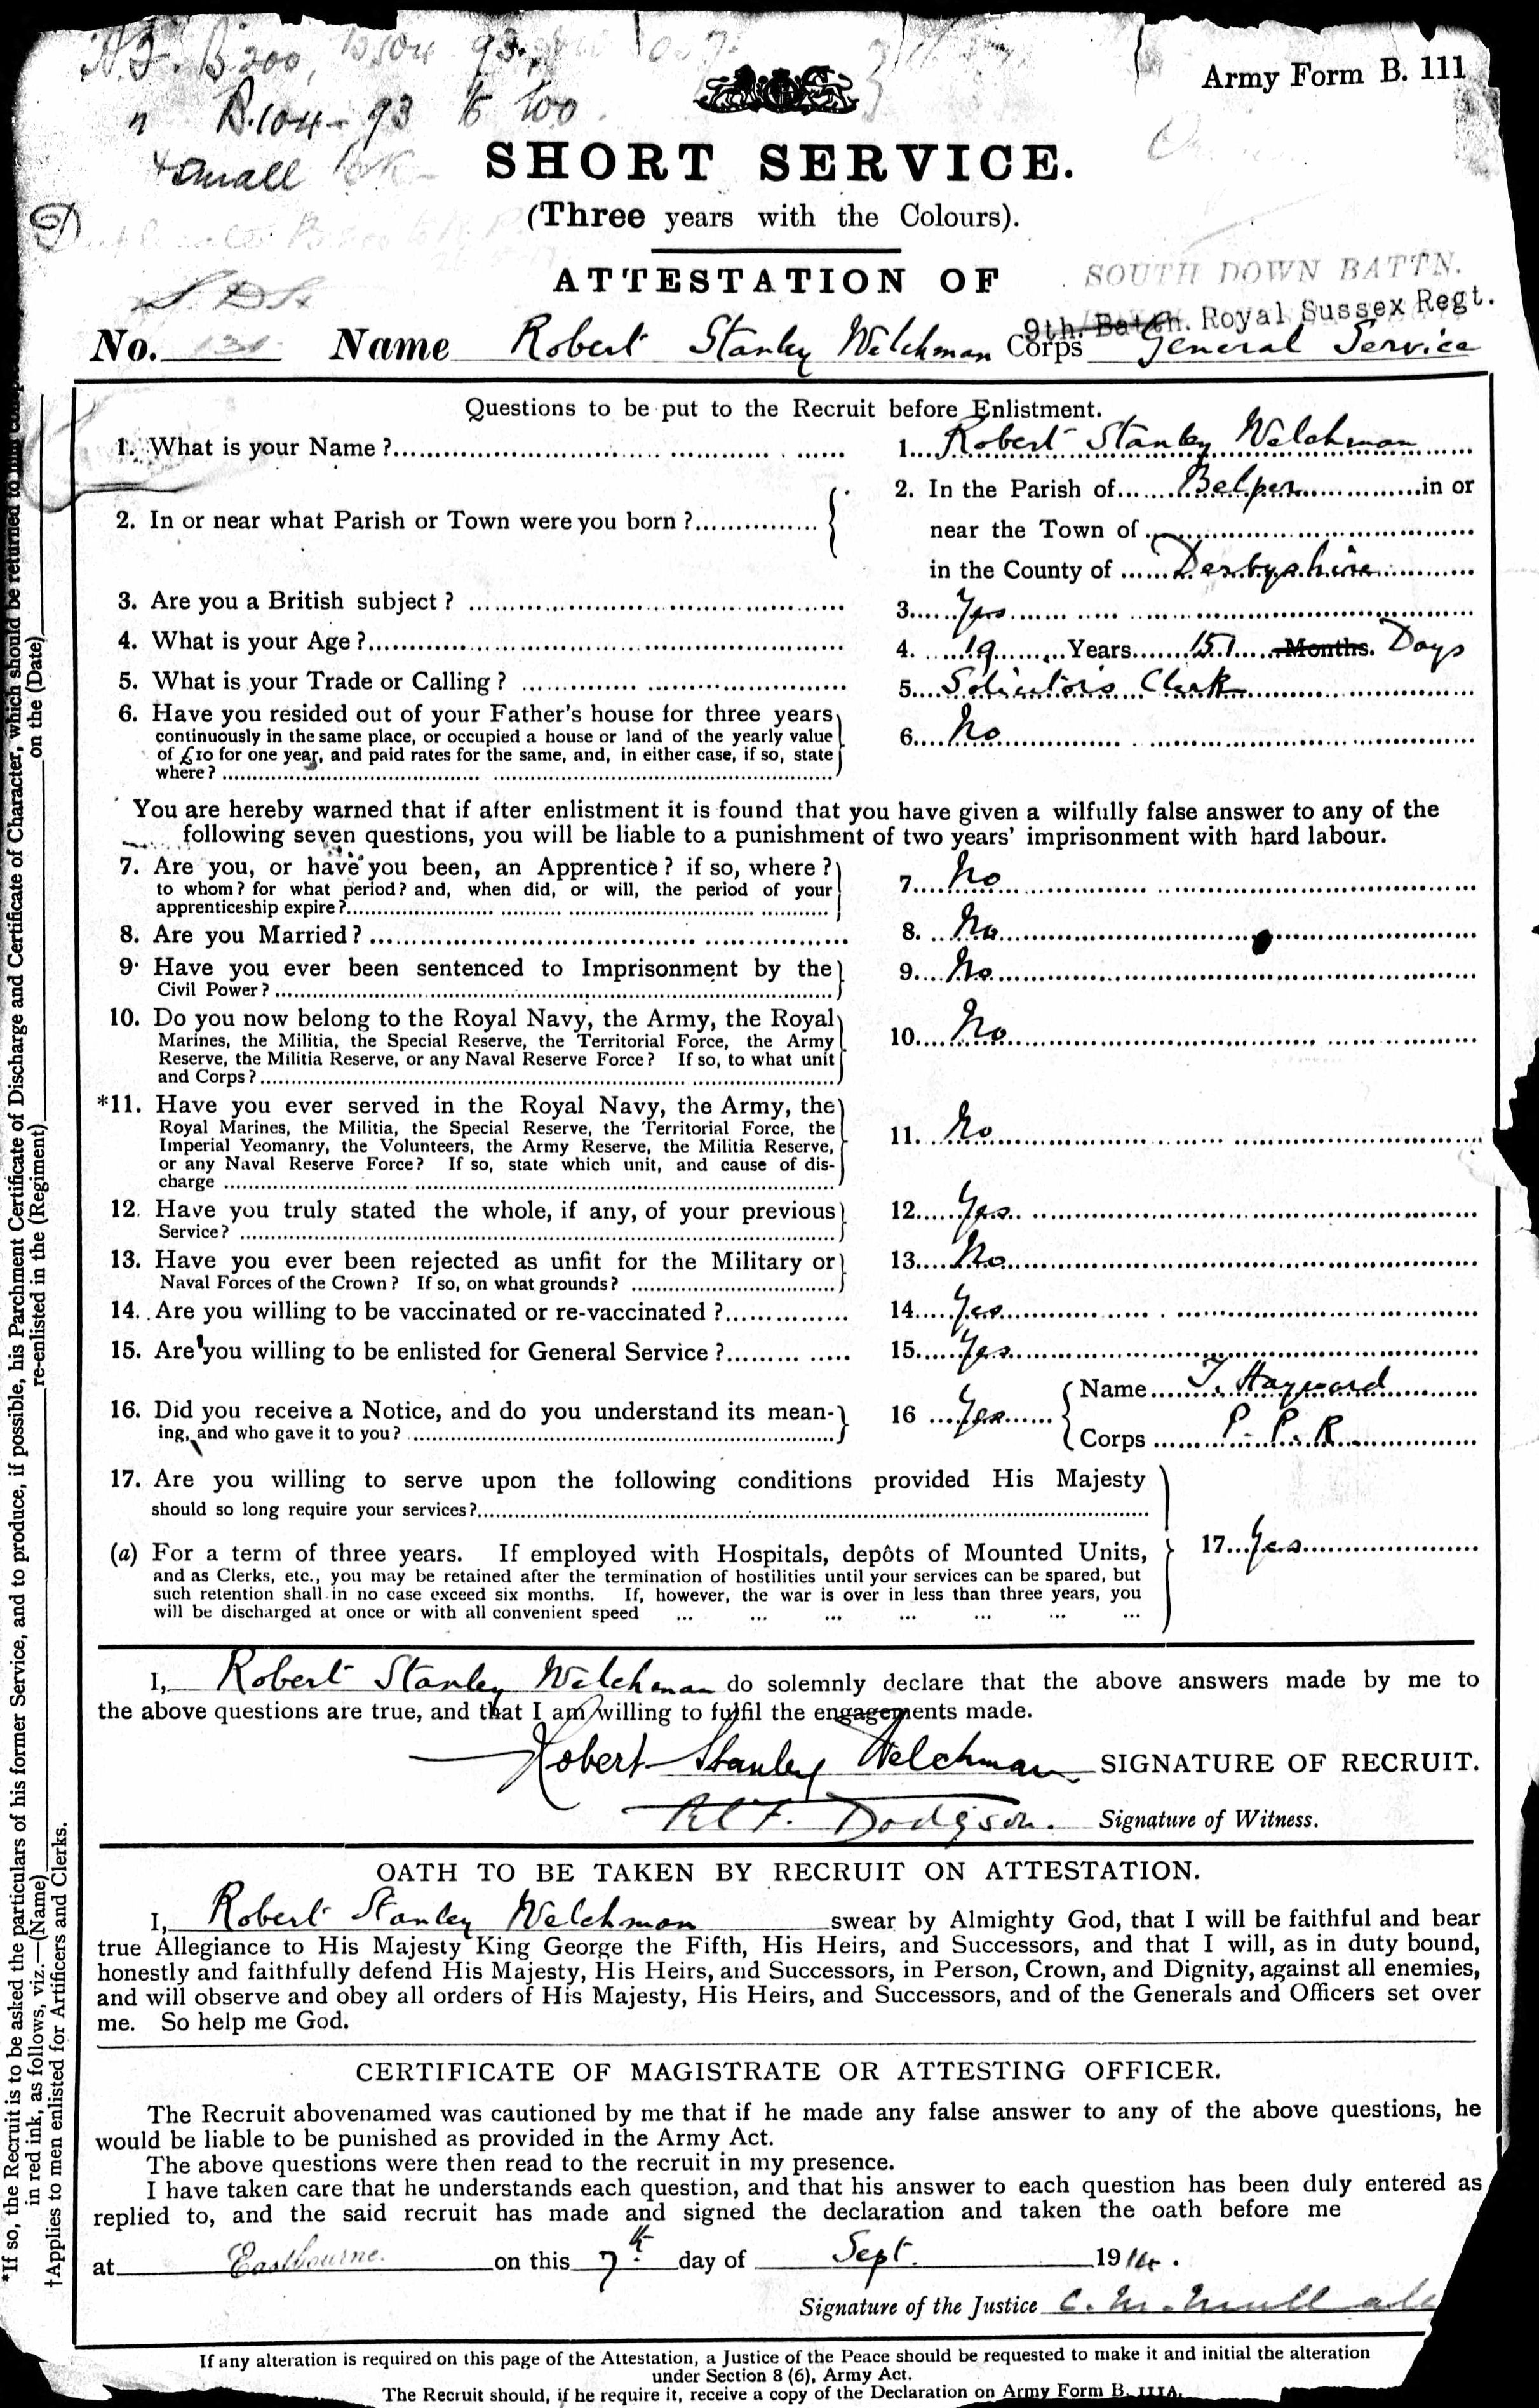 Army Form B. 111
B.104-93 to 100
small
SHORT SERVICE.
(Three years with the Colours).
ATTESTATION OF
SOUTH DOWN BATTN.
9th. Battn. Royal Sussex Regt.
No. Name Robert Stanley Welchman Corps General Service
Questions to be put to the Recruit before Enlistment.
1. What is your Name ? 1. Robert Stanley Welchman
2. In or near what Parish or Town were you born ? 2. In the Parish of Belper in or
near the Town of
in the County of Derbyshire
3. Are you a British subject ? 3. Yes
4. What is your Age ? 4. 19 Years 151 Months. Days
5. What is your Trade or Calling ? 5. Solicitor's Clerk
6. Have you resided out of your Father's house for three years
continuously in the same place, or occupied a house or land of the yearly value 6. No
of £10 for one year, and paid rates for the same, and, in either case, if so, state
where ?
You are hereby warned that if after enlistment it is found that you have given a wilfully false answer to any of the
following seven questions, you will be liable to a punishment of two years' imprisonment with hard labour.
7. Are you, or have you been, an Apprentice ? if so, where ?
to whom ? for what period ? and, when did, or will, the period of your 7. No
apprenticeship expire ?
8. Are you Married ? 8. No
9. Have you ever been sentenced to Imprisonment by the 9. No
Civil Power ?
10. Do you now belong to the Royal Navy, the Army, the Royal
Marines, the Militia, the Special Reserve, the Territorial Force, the Army 10. No
Reserve, the Militia Reserve, or any Naval Reserve Force ? If so, to what unit
and Corps ?
*11. Have you ever served in the Royal Navy, the Army, the
Royal Marines, the Militia, the Special Reserve, the Territorial Force, the
Imperial Yeomanry, the Volunteers, the Army Reserve, the Militia Reserve, 11. No
or any Naval Reserve Force ? If so, state which unit, and cause of dis-
charge
12. Have you truly stated the whole, if any, of your previous 12. Yes
Service ?
13. Have you ever been rejected as unfit for the Military or 13. No
Naval Forces of the Crown ? If so, on what grounds ?
14. Are you willing to be vaccinated or re-vaccinated ? 14. Yes
15. Are you willing to be enlisted for General Service ? 15. Yes
Name T. Hayward
16. Did you receive a Notice, and do you understand its mean- 16 Yes
ing, and who gave it to you ? Corps P. P. R
17. Are you willing to serve upon the following conditions provided His Majesty
should so long require your services ?
(a) For a term of three years. If employed with Hospitals, depôts of Mounted Units, 17. Yes
and as Clerks, etc., you may be retained after the termination of hostilities until your services can be spared, but
such retention shall in no case exceed six months. If, however, the war is over in less than three years, you
will be discharged at once or with all convenient speed ... ... ... ... ... ... ...
I, Robert Stanley Welchman do solemnly declare that the above answers made by me to
the above questions are true, and that I am willing to fulfil the engagements made.
Robert Stanley Welchman SIGNATURE OF RECRUIT.
Dodgson. Signature of Witness.
OATH TO BE TAKEN BY RECRUIT ON ATTESTATION.
I, Robert Stanley Welchman swear by Almighty God, that I will be faithful and bear
true Allegiance to His Majesty King George the Fifth, His Heirs, and Successors, and that I will, as in duty bound,
honestly and faithfully defend His Majesty, His Heirs, and Successors, in Person, Crown, and Dignity, against all enemies,
and will observe and obey all orders of His Majesty, His Heirs, and Successors, and of the Generals and Officers set over
me. So help me God.
CERTIFICATE OF MAGISTRATE OR ATTESTING OFFICER.
The Recruit abovenamed was cautioned by me that if he made any false answer to any of the above questions, he
would be liable to be punished as provided in the Army Act.
The above questions were then read to the recruit in my presence.
I have taken care that he understands each question, and that his answer to each question has been duly entered as
replied to, and the said recruit has made and signed the declaration and taken the oath before me
at Eastbourne. on this 7th day of Sept. 1914.
Signature of the Justice
If any alteration is required on this page of the Attestation, a Justice of the Peace should be requested to make it and initial the alteration
under Section 8 (6), Army Act.
The Recruit should, if he require it, receive a copy of the Declaration on Army Form B. 111A.
*If so, the Recruit is to be asked the particulars of his former Service, and to produce, if possible, his Parchment Certificate of Discharge and Certificate of Character, which should be returned to him
in red ink, as follows, viz.—(Name) re-enlisted in the (Regiment) on the (Date)
†Applies to men enlisted for Artificers and Clerks.